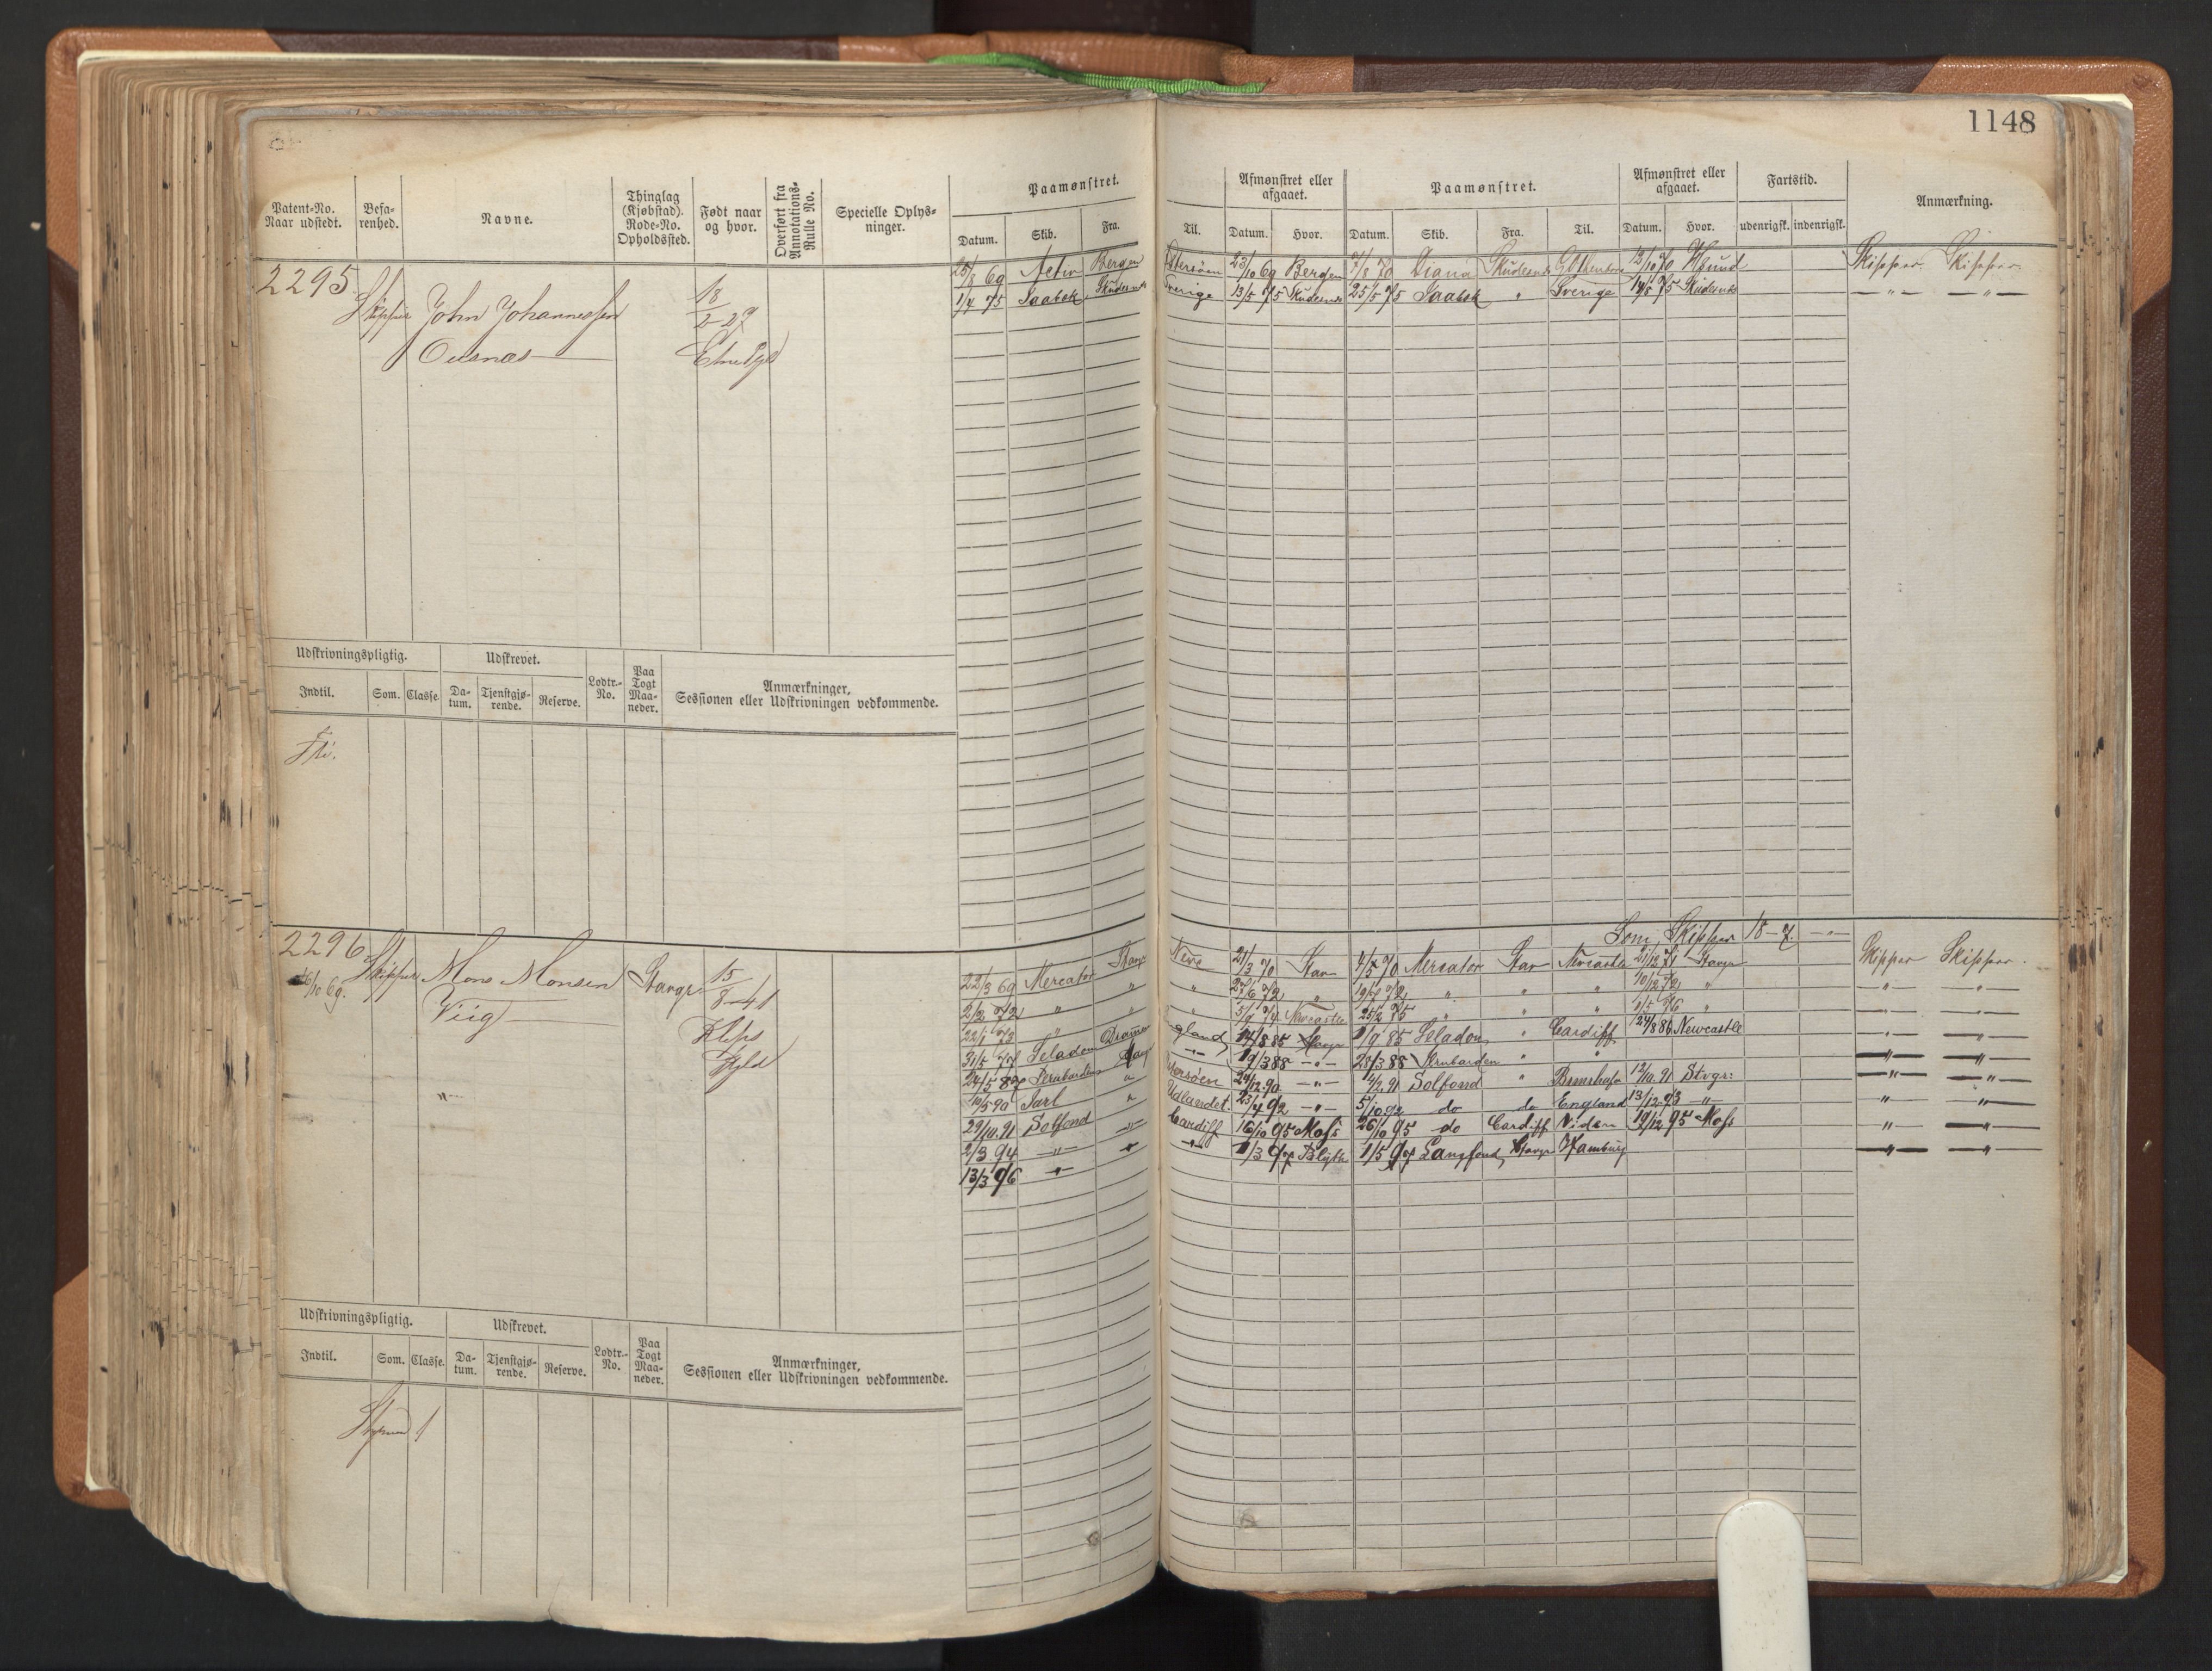 1148
Patent-No. Naar udstedt. Befa-renhed. Navne. Thinglag (Kjøbstad). Rode-No. Opholdssted. Født naar og hvor. Overført fra Annotations-Rulle No. Specielle Oplys-ninger. Paamønstret. Datum. Skib. Fra.
Til. Afmønstret eller afgaaet. Datum. Hvor. Paamønstret. Datum. Skib. Fra. Til. Afmønstret eller afgaaet. Datum. Hvor. Fartstid. udenrigsk. indenrigsk. Anmærkning.
2295 Skipper John Johannessen
18/2 29
25/8 69 Bergen 23/10 69 Bergen 7/8 70 Diana 13/10 70 Skipper Skipper
1/4 75 Saabek Skudesnes Sverige 13/5 75 Skudesnes 25/5 75 Saabek " Sverige 14/8 75 Skudesnes — " — — " —
Udskrivningspligtig. Udskrevet. Lodtr.-No. Paa Togt Maa-neder. Anmærkninger, Sessionen eller Udskrivningen vedkommende.
Indtil. Som. Classe. Da-tum. Tjenstgjø-rende. Reserve.
Fri.
Som Skipper 18 - 7 - " -
2296 Skipper Mons Monsen Stavgr 15/8 - 41
16/10 69. Viig
Kleps
Pgld
22/3 69 Mercator Stavgr 21/3 70 Stav 4/5 70 Mercator Stav Newcastle 21/12 71 Stavgr Skipper Skipper.
2/2 72 " " " 27/6 72 " 19/7 72 " " " 10/12 72 " — " — "
22/1 73 " " " 5/9 74 Newcastle 25/2 75 " " " 1/5 76 " — " — "
31/5 77 Seladon Drammen 14/8 85 Stavgr 1/9 85 Seladon " Cardiff 24/8 86 Newcastle " — " —
24/5 87 Stavgr — " — 19/3 88 - " - 28/3 88 " " — " — — " —
10/5 90 Jarl " 24/12 90 - " - 14/2 91 Solfond " 12/10 91 Stvgr: — " — — " —
29/10 91 Solfond " Udlandet. 23/4 92 - " - 5/10 92 do do England 13/12 93 - " - " — " —
2/3 94 — " — — " — Cardiff 16/10 95 Moss 26/10 95 do Cardiff Viden 19/12 95 Moss " — " —
13/3 96 — " — — " — — " — 1/3 97 Blyth 1/5 97 Langfond Stavgr Hamburg — " — — " —
Udskrivningspligtig. Udskrevet. Lodtr.-No. Paa Togt Maa-neder. Anmærkninger, Sessionen eller Udskrivningen vedkommende.
Indtil. Som. Classe. Da-tum. Tjenstgjø-rende. Reserve.
Styrmd 1